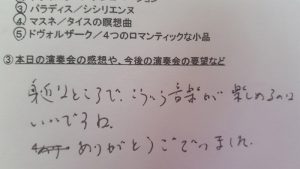 ③ パラディス/シシリエンヌ
④ マスネ/タイスの瞑想曲
⑤ ドヴォルザーク/4つのロマンティックな小品
③ 本日の演奏会の感想や、今後の演奏会の要望など
近なところで、こういう音楽が楽しめるのは
いいですね。
ありがとうございました。